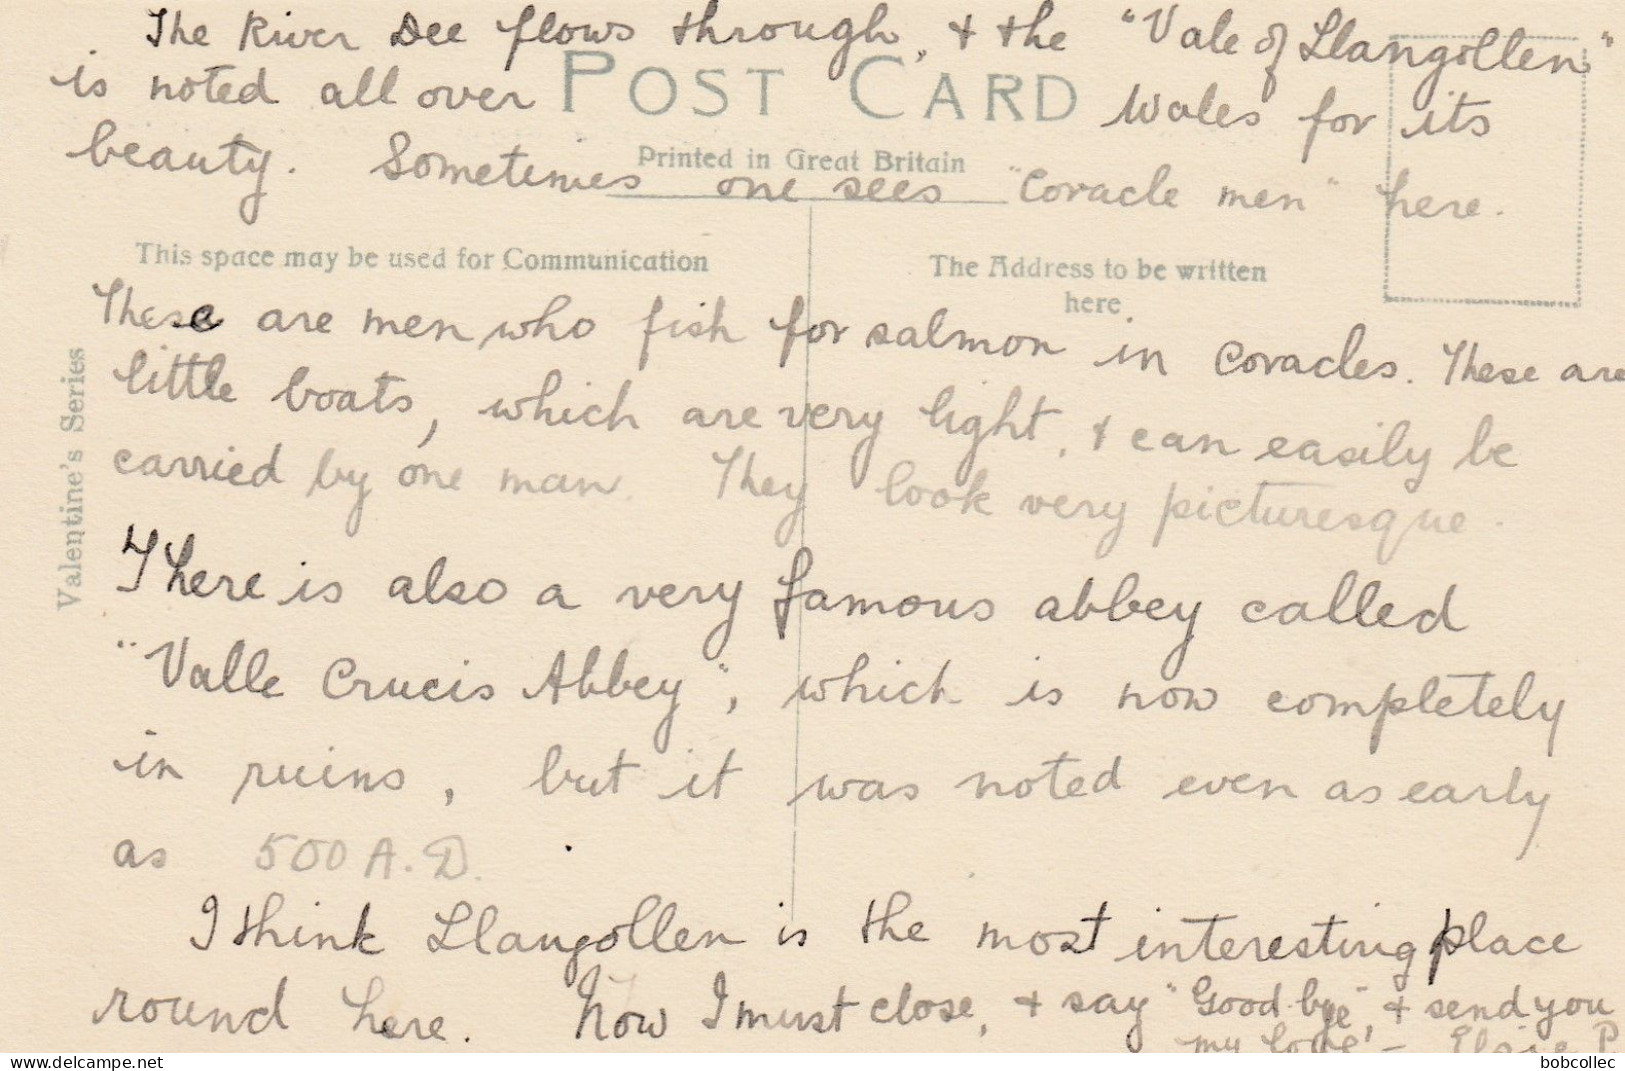 The River Dee flows through, & the "Vale of Llangollen"
is noted all over Wales for its
POST CARD
beauty. Sometimes one sees "Coracle men" here.
Printed in Great Britain
This space may be used for Communication
The Address to be written
here.
These are men who fish for salmon in coracles. These are
little boats, which are very light, & can easily be
carried by one man. They look very picturesque.
Valentine's Series
There is also a very famous abbey called
"Valle Crucis Abbey", which is now completely
in ruins, but it was noted even as early
as 500 A.D.
I think Llangollen is the most interesting place
round here. Now I must close, & say "Good-bye", & send you
my love! - Elsie P.
bobcollec